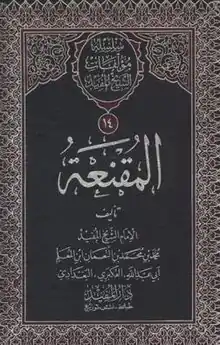 سلسلة
مؤلفات
الشيخ المفيد
١٤
المقنعة
تأليف
الإمام الشيخ المفيد
محمد بن محمد بن النعمان ابن المعلم
أبي عبد الله، العكبري، البغدادي
دار المفيد
طباعة - نشر - توزيع